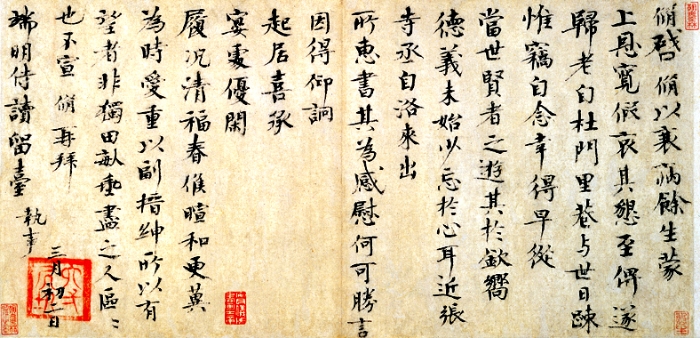 脩啓脩以衰病餘生蒙
上恩寬假哀其懇至俾遂
歸老自杜門里巷与世日疎
惟竊自念幸得早從
當世賢者之遊其於欽嚮
德義未始少忘於心耳近張
寺丞自洛來出
所惠書其為感慰何可勝言
因得仰詢
起居喜承
宴處優閑
履況清福春候暄和更冀
為時愛重以副搢紳所以有
望者非獨田畝垂盡之人區區
也不宣 脩再拜
端明侍讀留臺 執事
三月初二日